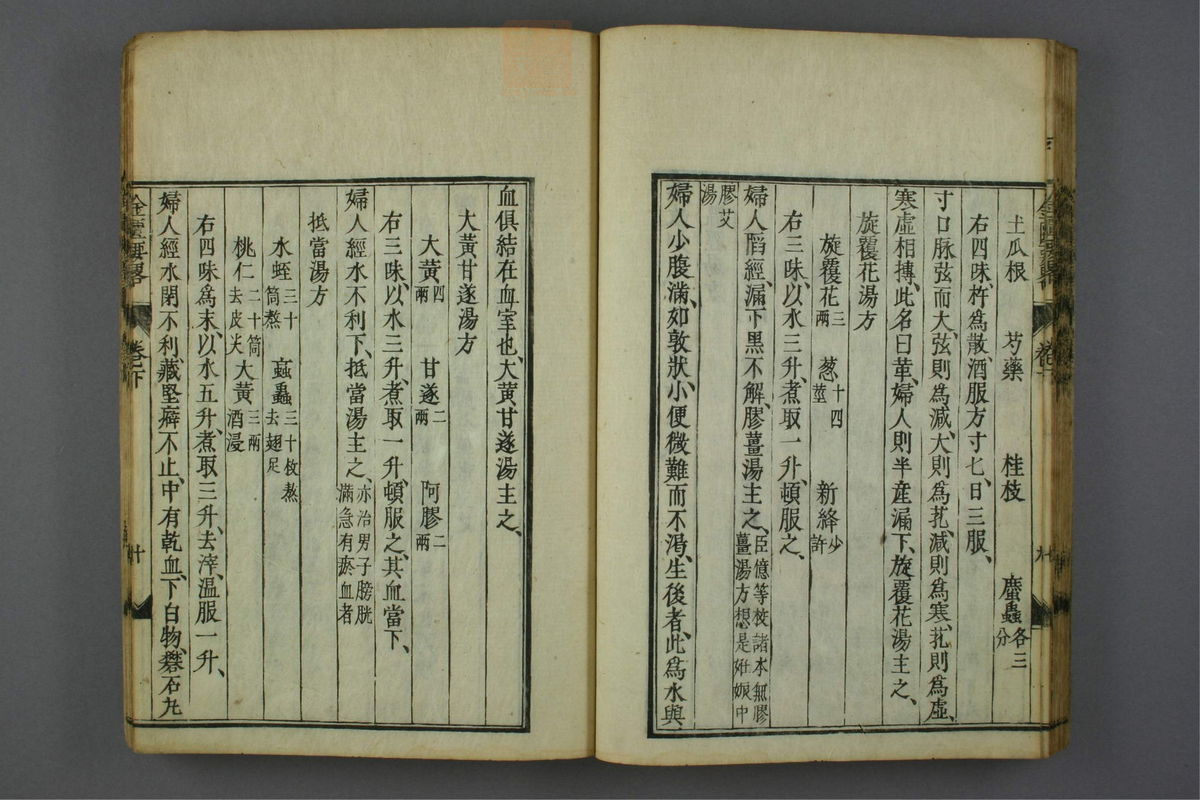 土瓜根　芍藥　桂枝　䗪蟲各三分
右四味、杵爲散、酒服方寸匕、日三服、
寸口脉弦而大、弦則爲減、大則爲芤、減則爲寒、芤則爲虛、
寒虛相摶、此名曰革、婦人則半產漏下、旋覆花湯主之、
旋覆花湯方
旋覆花三兩　葱十四莖　新絳少許
右三味、以水三升、煮取一升、頓服之、
婦人陷經、漏下黑不解、膠薑湯主之、臣億等校諸本無膠薑湯方想是姙娠中
膠艾湯
婦人少腹滿、如敦狀、小便微難而不渴、生後者、此爲水與
血俱結在血室也、大黃甘遂湯主之、
大黃甘遂湯方
大黃四兩　甘遂二兩　阿膠二兩
右三味、以水三升、煮取一升、頓服之、其血當下、
婦人經水不利下、抵當湯主之、亦治男子膀胱滿急有瘀血者
抵當湯方
水蛭三十箇熬　䖟蟲三十枚熬去翅足
桃仁二十箇去皮尖　大黃三兩酒浸
右四味爲末、以水五升、煮取三升、去滓、溫服一升、
婦人經水閉不利、藏堅癖不止、中有乾血、下白物、礬石丸
金匱要略　卷下　十